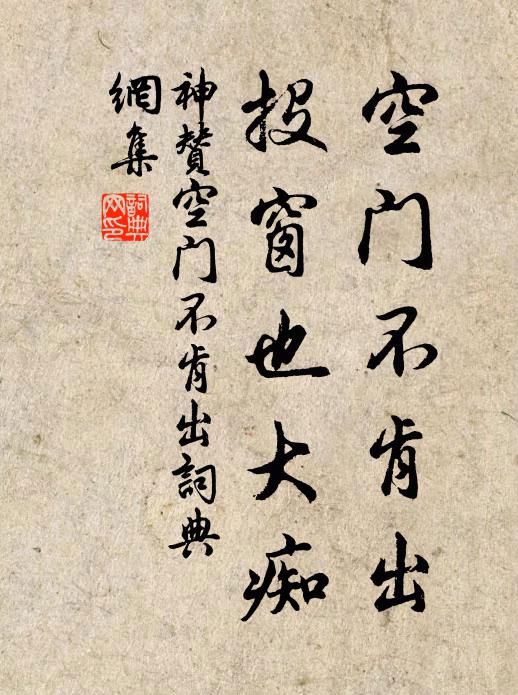 空门不肯出
投窗也大痴
神贊空门不肯出詞典
網集
詞典
网印